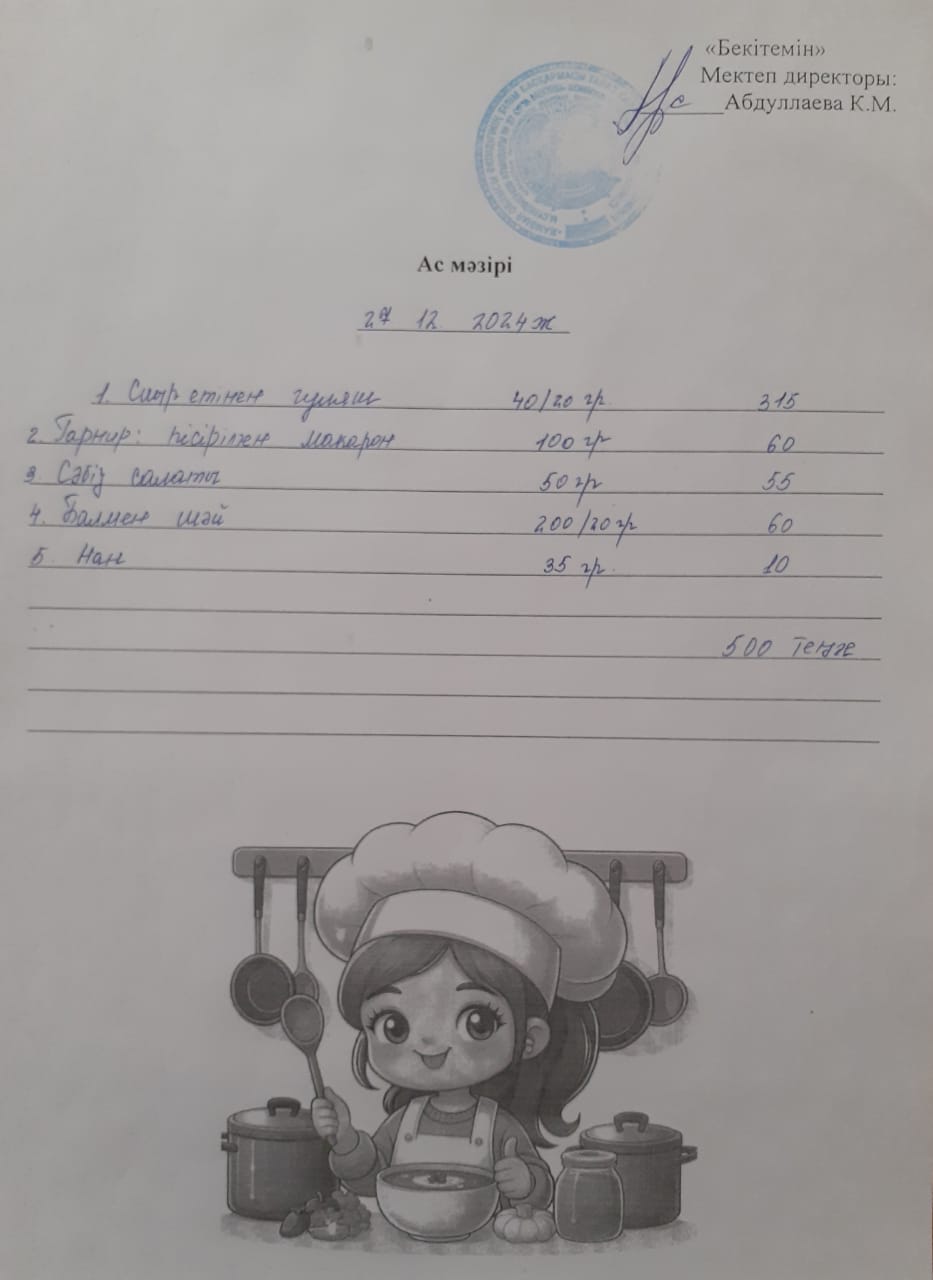 «Бекітемін»
Мектеп директоры:
Абдуллаева К.М.
Ас мәзірі
27 12. 2024ж
1. Сиыр етінен гуляш 40/20 гр. 315
2. Гарнир: пісірілген макарон 100 гр 60
3 Сәбіз салаты 50 гр 55
4. Балмен шәй 200/20 гр 60
5 Нан 35 гр. 10
500 теңге